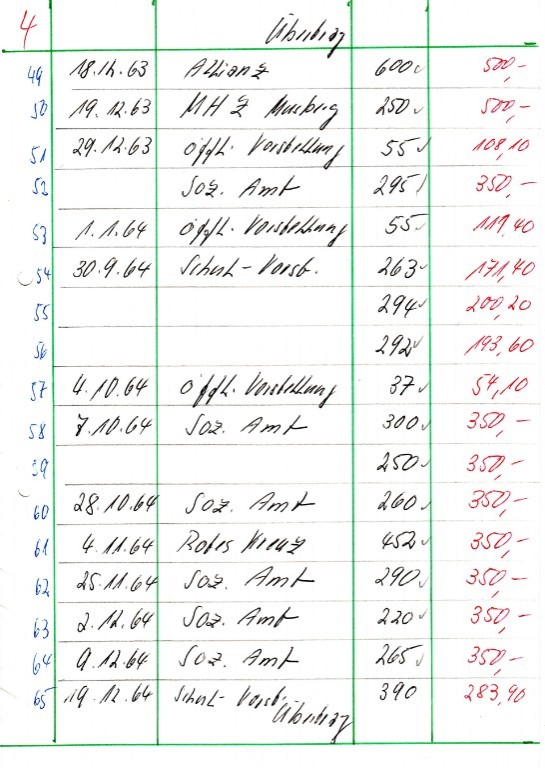 4 Übertrag
49 18.12.63 Allianz 600 500,-
50 19.12.63 MHZ Musberg 250 500,-
51 29.12.63 öffl. Vorstellung 55 108,10
52 Soz. Amt 295 350,-
53 1.1.64 öffl. Vorstellung 55 119,40
54 30.9.64 Schul-Vorst. 263 171,40
55 294 200,20
56 292 193,60
57 4.10.64 öffl. Vorstellung 37 54,10
58 7.10.64 Soz. Amt 300 350,-
59 250 350,-
60 28.10.64 Soz. Amt 260 350,-
61 4.11.64 Rotes Kreuz 452 350,-
62 25.11.64 Soz. Amt 290 350,-
63 2.12.64 Soz. Amt 220 350,-
64 9.12.64 Soz. Amt 265 350,-
65 19.12.64 Schul-Vorst. 390 283,90
Übertrag